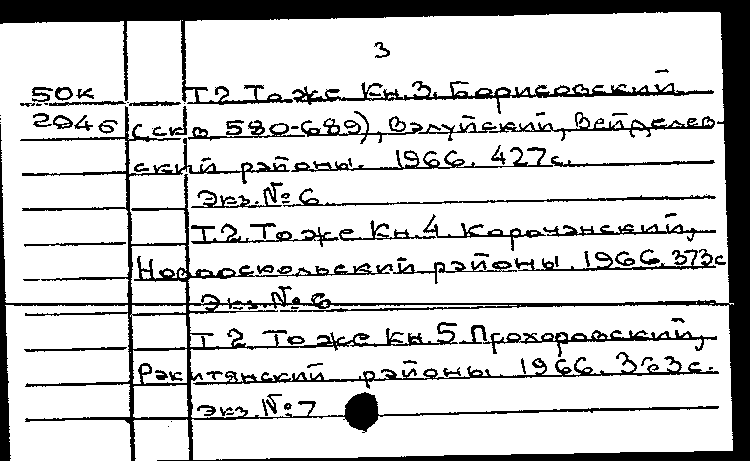 3
50к Т.2. То же. Кн.3. Борисовский
2946 (скв 580-689), Валуйский, Вейделев-
ский районы. 1966. 427с.
Экз. № 6
Т.2. То же. Кн.4. Корочанский,
Новооскольский районы. 1966. 373с
Экз. № 6
Т.2. То же. Кн.5. Прохоровский,
Ракитянский районы. 1966. с.
Экз. № 7